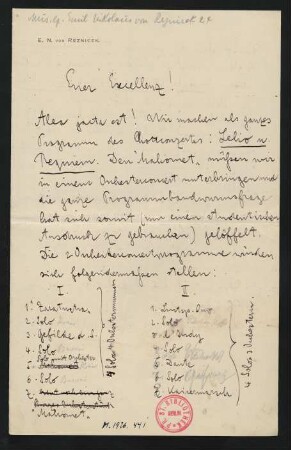 Mus. ep. Emil Nikolaus von Reznicek 24
E. N. von Reznicek.
Euer Excellenz!
Alea jacta est! Wir machen als ganzes
Programm des Chorkonzertes: Lelio u.
Requiem. Den "Mahomet" müssen wir
in einem Orchesterconcert unterbringen und
die ganze Programmbandwurmfrage
hat sich somit (um einen studentischen
Ausdruck zu gebrauchen) gelöffelt.
Die 2 Orchesterconcertprogramme würden
sich folgendermaßen stellen:
I.
1.
2. Solo
3. Gefilde d. S.
4. Solo
Solo mit Orchester
6. Solo
7.
"Mahomet"
II
1.
2. Solo
3.
4. Solo
5.
6. Solo
7. Kaisermarsch
4 Solos 3 Orchestern.
M. 1926. 441